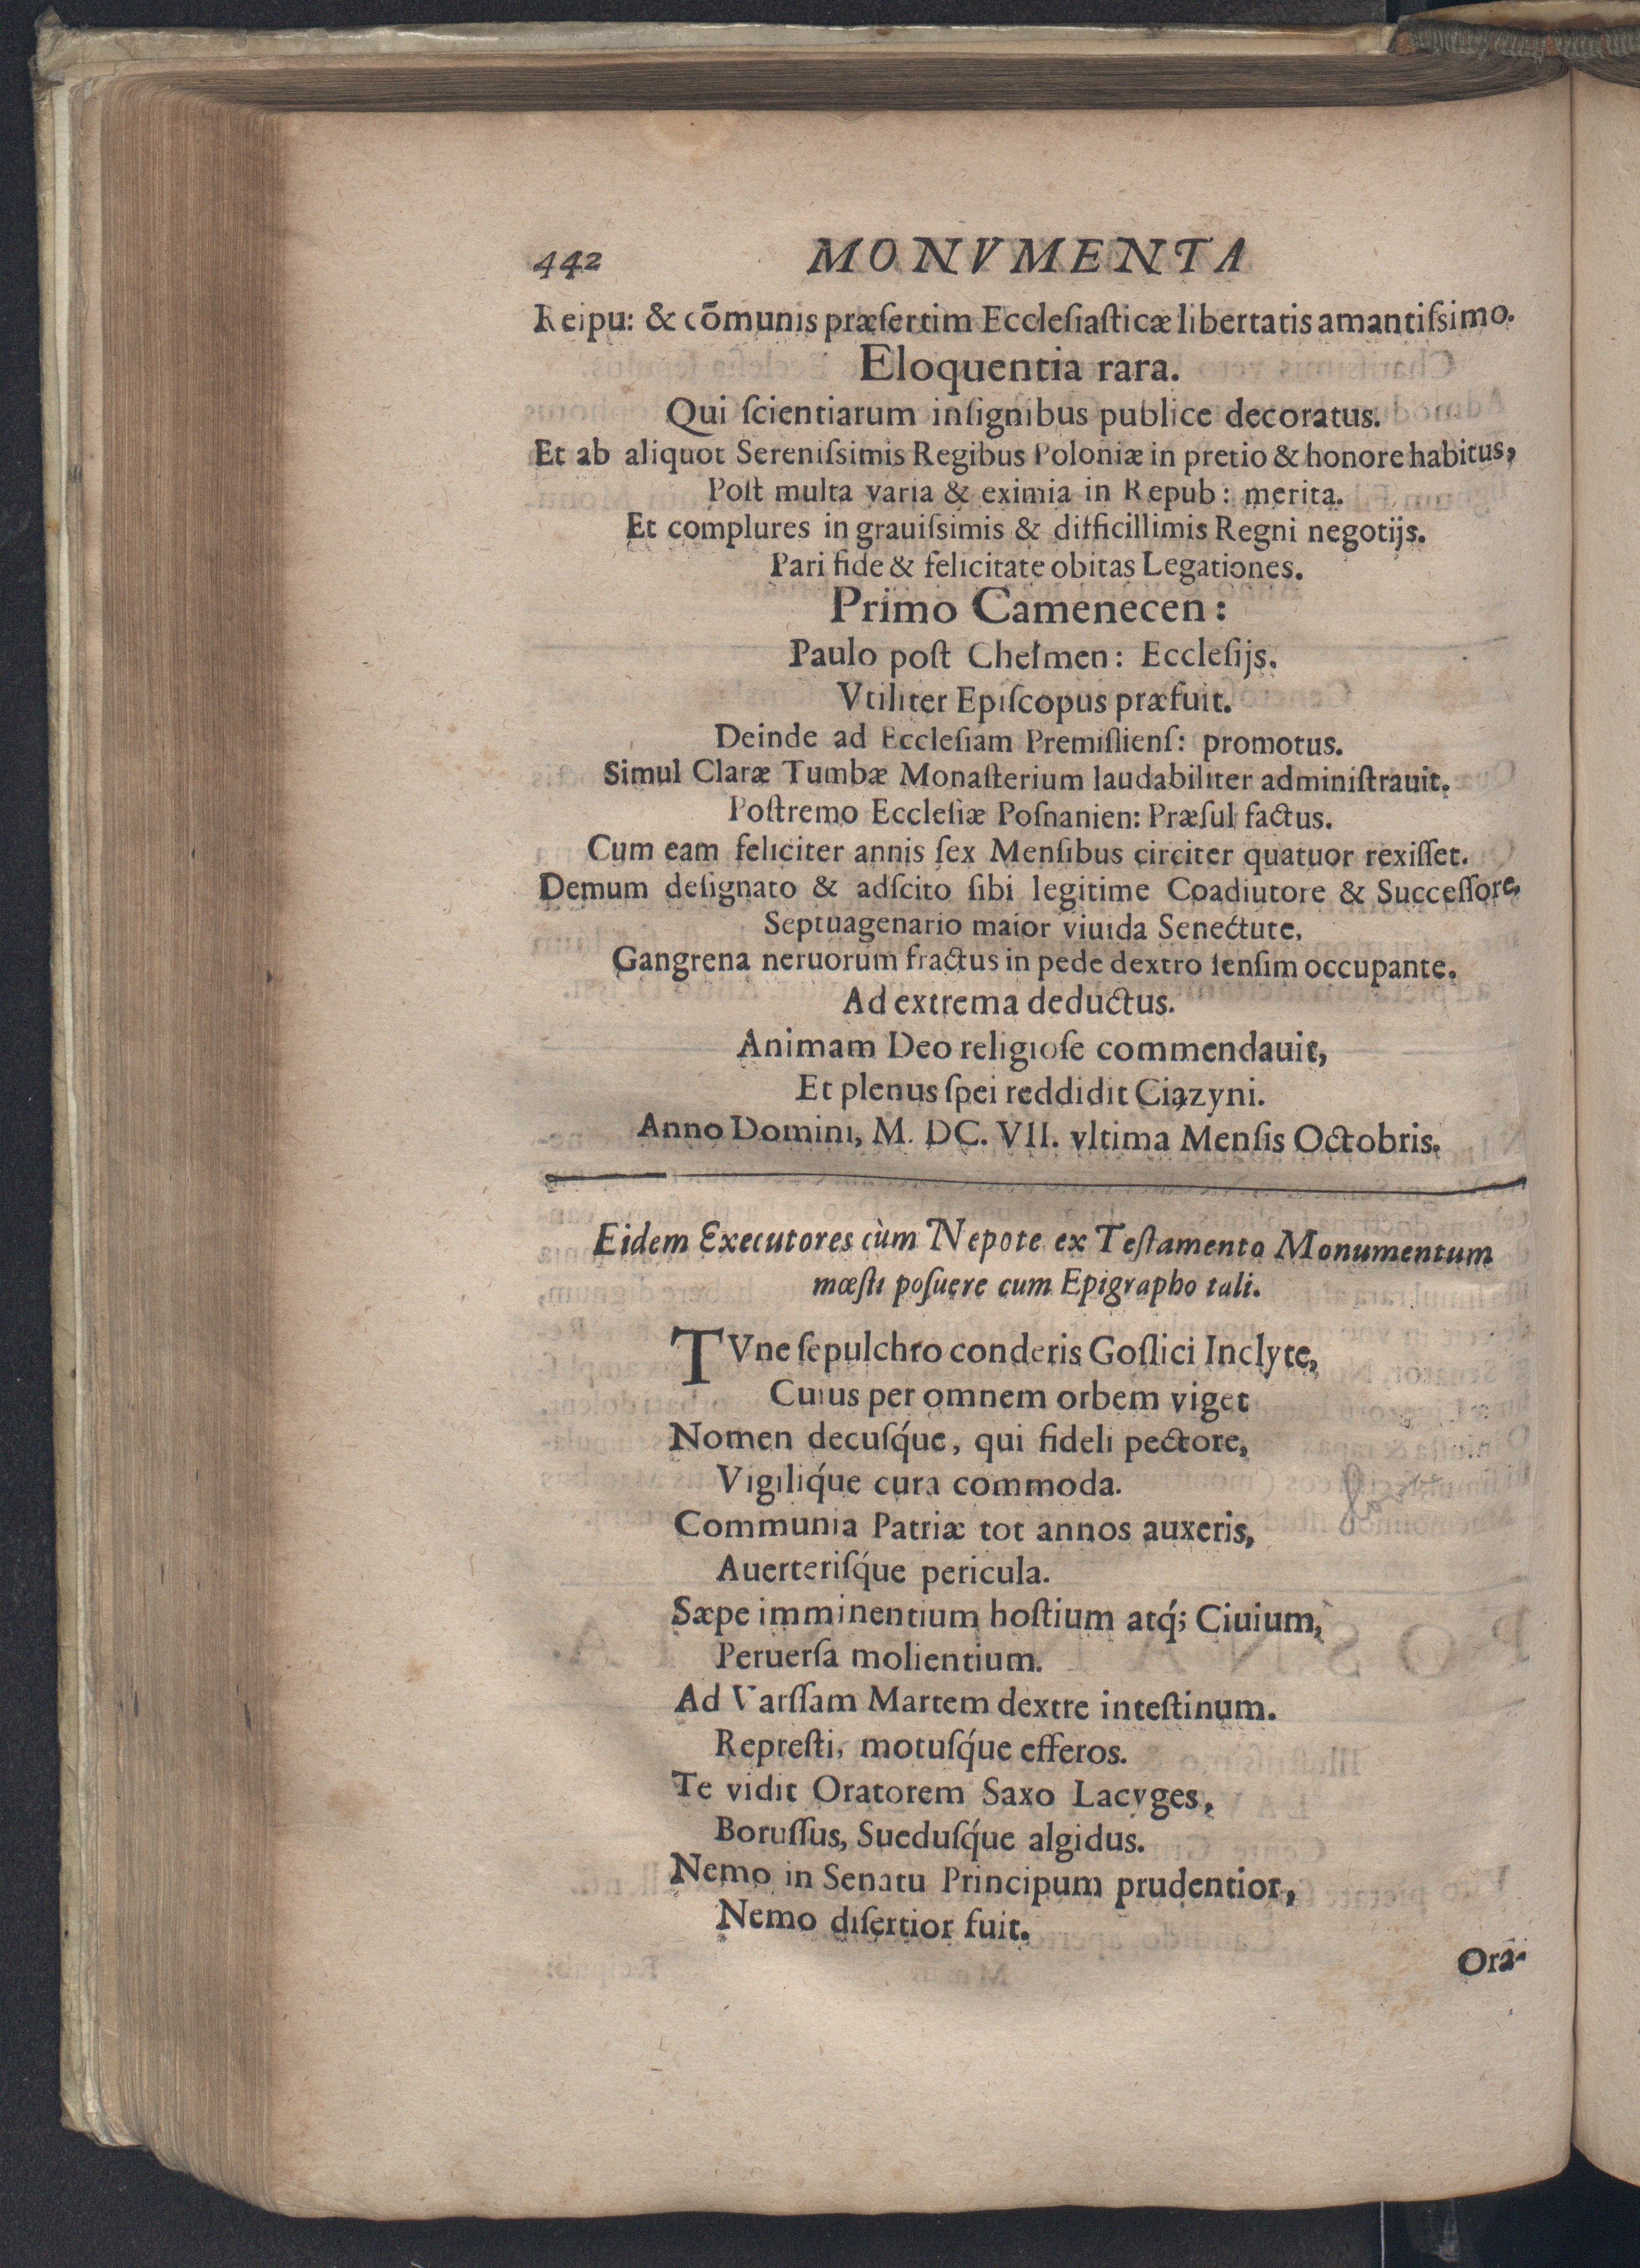 442 MONVMENTA
Reipu: & cōmunis præſertim Eccleſiaſticæ libertatis amantiſsimo.
Eloquentia rara.
Qui ſcientiarum inſignibus publice decoratus.
Et ab aliquot Sereniſsimis Regibus Poloniæ in pretio & honore habitus,
Poſt multa varia & eximia in Repub: merita.
Et complures in grauiſsimis & difficillimis Regni negotijs.
Pari fide & felicitate obitas Legationes.
Primo Camenecen:
Paulo poſt Chełmen: Eccleſijs.
Vtiliter Epiſcopus præfuit.
Deinde ad Eccleſiam Premiſlienſ: promotus.
Simul Claræ Tumbæ Monaſterium laudabiliter adminiſtrauit.
Poſtremo Eccleſiæ Poſnanien: Præſul factus.
Cum eam feliciter annis ſex Menſibus circiter quatuor rexiſſet.
Demum deſignato & adſcito ſibi legitime Coadiutore & Succeſſore,
Septuagenario maior viuida Senectute,
Gangrena neruorum fractus in pede dextro ſenſim occupante.
Ad extrema deductus.
Animam Deo religioſe commendauit,
Et plenus ſpei reddidit Ciązyni.
Anno Domini, M. DC. VII. vltima Menſis Octobris.
Eidem Executores cùm Nepote ex Teſtamento Monumentum
mœſti poſuere cum Epigrapho tali.
TVne ſepulchro conderis Goſlici Inclyte,
Cuius per omnem orbem viget
Nomen decuſq́ue, qui fideli pectore,
Vigiliq́ue cura commoda.
Communia Patriæ tot annos auxeris,
Auerteriſq́ue pericula.
Sæpe imminentium hoſtium atq́; Ciuium,
Peruerſa molientium.
Ad Varſſam Martem dextre inteſtinum.
Repreſti, motuſq́ue efferos.
Te vidit Oratorem Saxo Lacyges,
Boruſſus, Sueduſq́ue algidus.
Nemo in Senatu Principum prudentior,
Nemo diſertior fuit.
Ora-